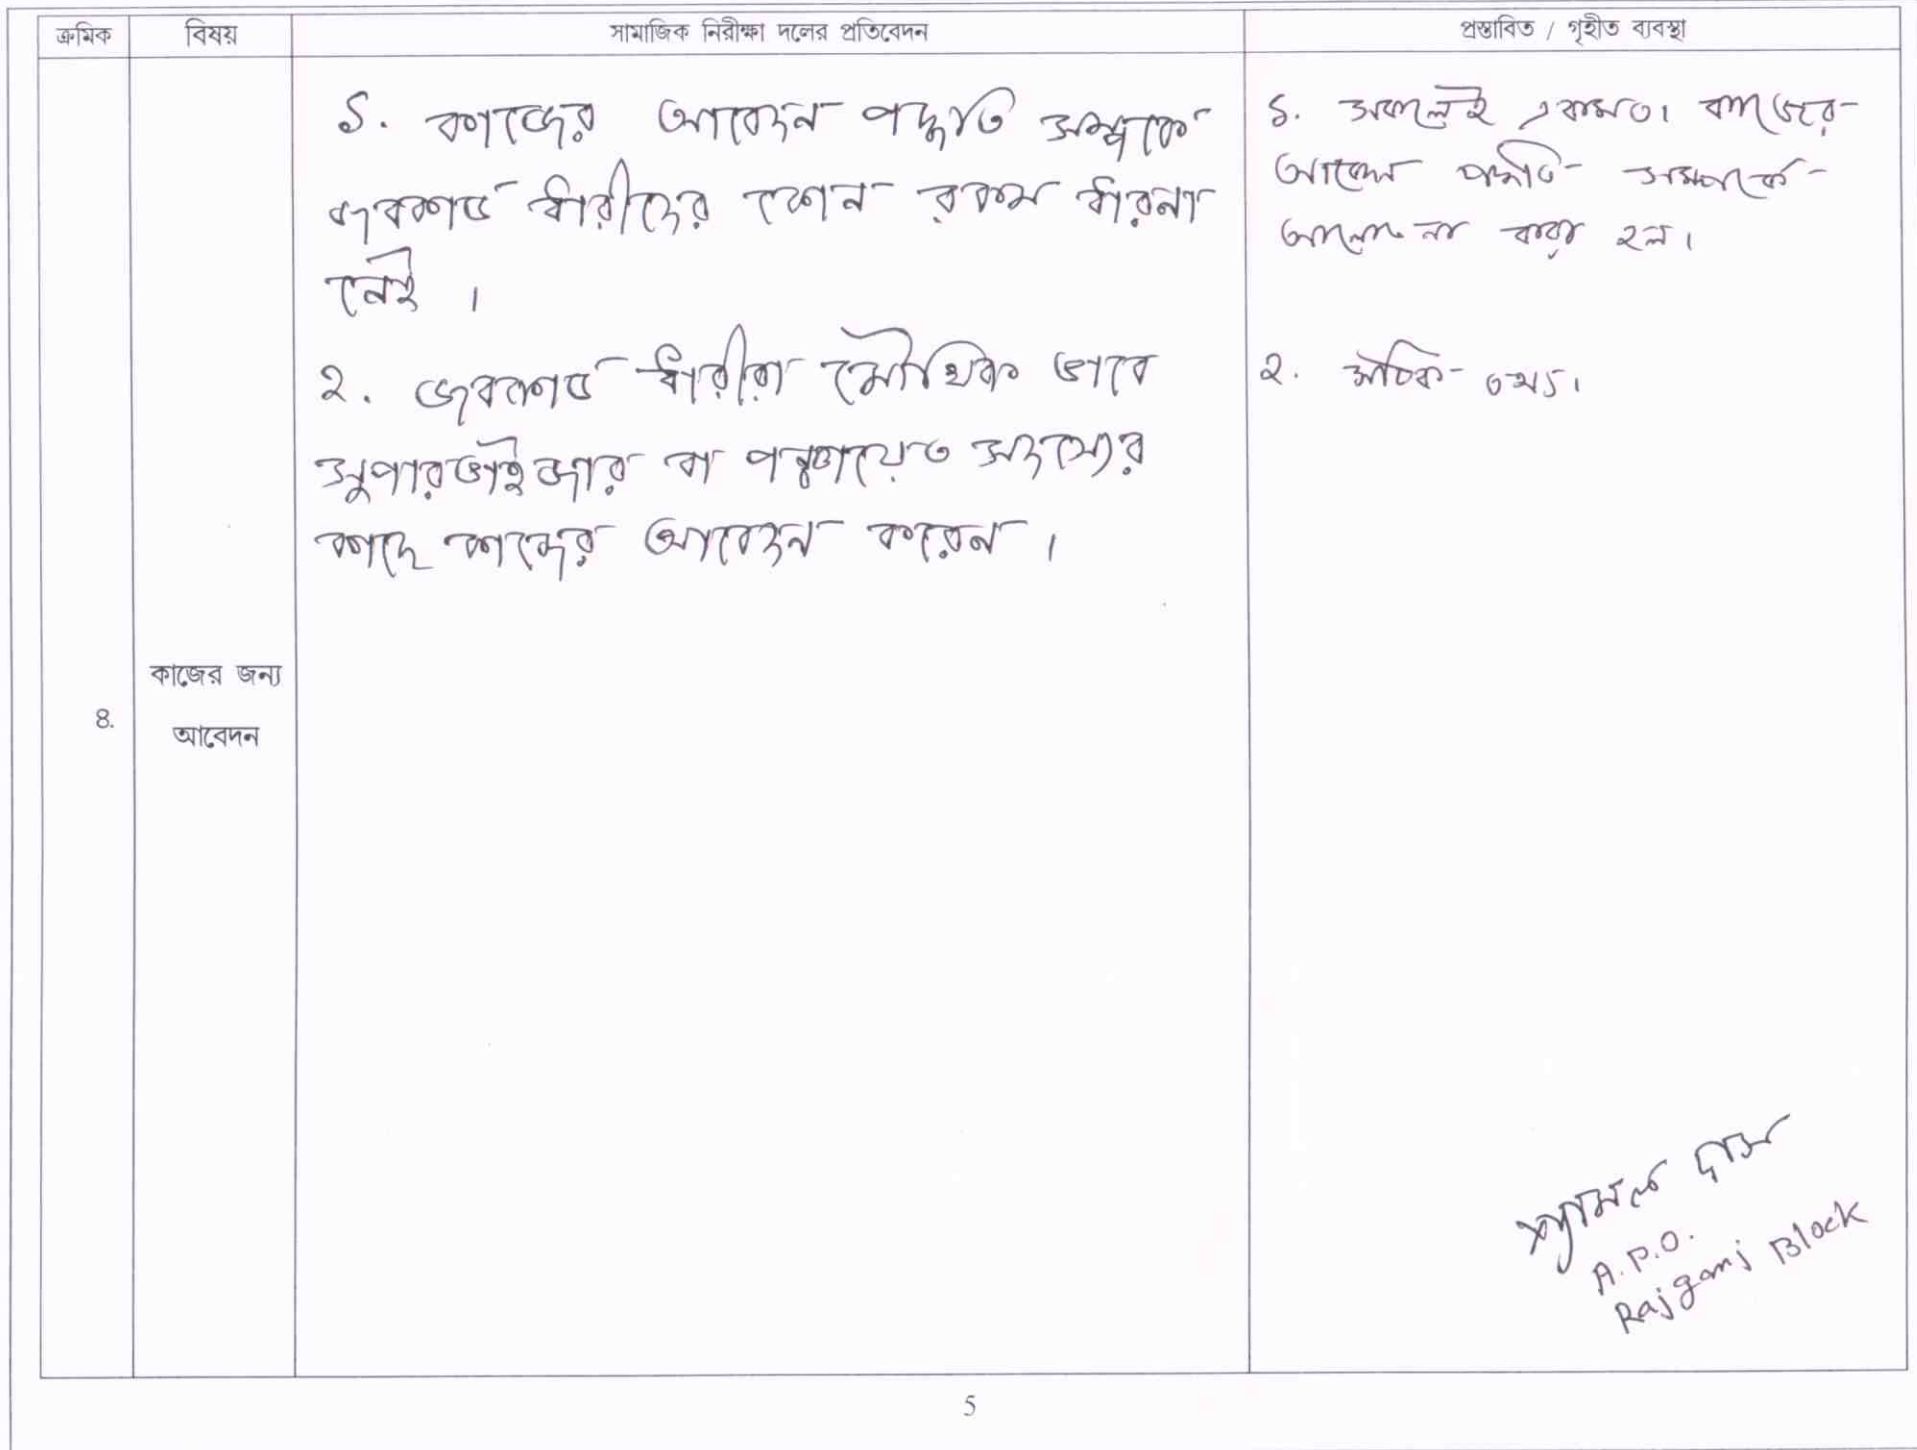 ক্রমিক বিষয় সামাজিক নিরীক্ষা দলের প্রতিবেদন প্রস্তাবিত / গৃহীত ব্যবস্থা
৪.
কাজের জন্য
আবেদন
১. কাজের আবেদন পদ্ধতি সম্পর্কে
জবকার্ড ধারীদের কোন রকম ধারনা
নেই ।
২. জবকার্ড ধারীরা মৌখিক ভাবে
সুপারভাইজার বা পঞ্চায়েত সদস্যের
কাছে কাজের আবেদন করেন ।
১. সকলেই একমত। কাজের
আবেদন পদ্ধতি সম্পর্কে
আলোচনা করা হল।
২. সঠিক তথ্য।
শ্যামল দাস
A.P.O.
Rajganj Block
5